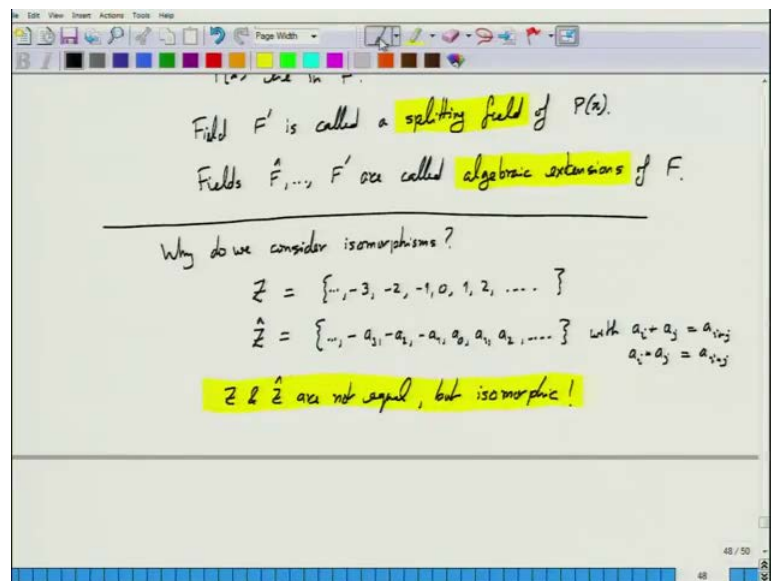 Edit View Insert Actions Tools Help
Page Width
B I
in F.
Field F' is called a splitting field of P(x).
Fields F̂, ..., F' are called algebraic extensions of F.
Why do we consider isomorphisms?
Z = {..., -3, -2, -1, 0, 1, 2, .... }
Ẑ = {..., -a₃, -a₂, -a₁, a₀, a₁, a₂, .... } with aᵢ + aⱼ = aᵢ₊ⱼ
aᵢ * aⱼ = aᵢ*ⱼ
Z & Ẑ are not equal, but isomorphic!
48 / 50
48